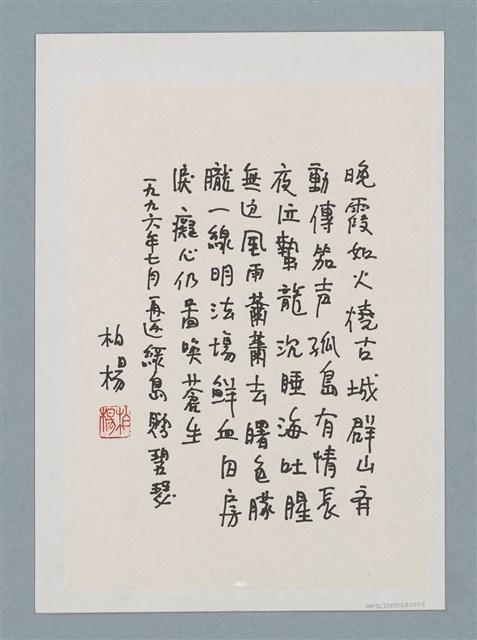 晚霞如火燒古城群山斉
動傳笳声孤島有情長
夜泣蟄龍沉睡海吐腥
無边風雨蕭蕭去曙色朦
朧一線明法場鮮血囚房
淚癡心仍啚喚蒼生
一九九六年七月再返綠島贈碧瑟
柏楊
柏楊